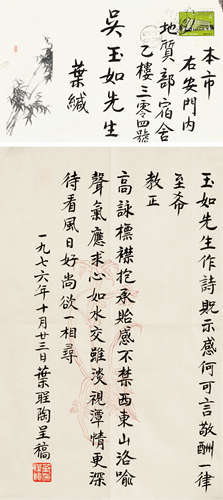 本市
右安門内
地質部宿舍
乙樓三零四號
吳玉如先生
葉緘
玉如先生作詩既示感何可言敬酬一律
至希
教正
高詠標襟抱承貽感不禁西東山洛喻
聲氣應求心如水交雖淡視潭情更深
待看風日好尚欲一相尋
一九七六年十月廿三日葉聖陶呈稿